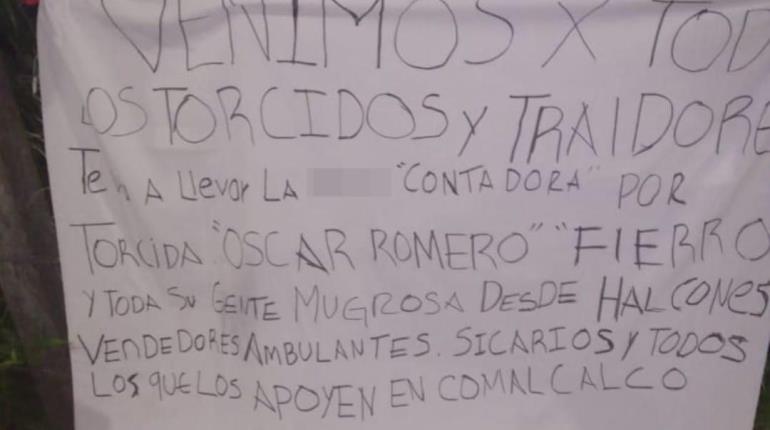 VENIMOS X TOD
LOS TORCIDOS y TRAIDORE
A LLevar LA "CONTADORA" POR
TORCIDA "OSCAR ROMERO" "FIERRO
Y TODA SU GENTE MUGROSA DESDE HALCONES
VENDEDORES AMBULANTES. SICARIOS Y TODOS
LOS QUE LOS APOYEN EN COMALCALCO